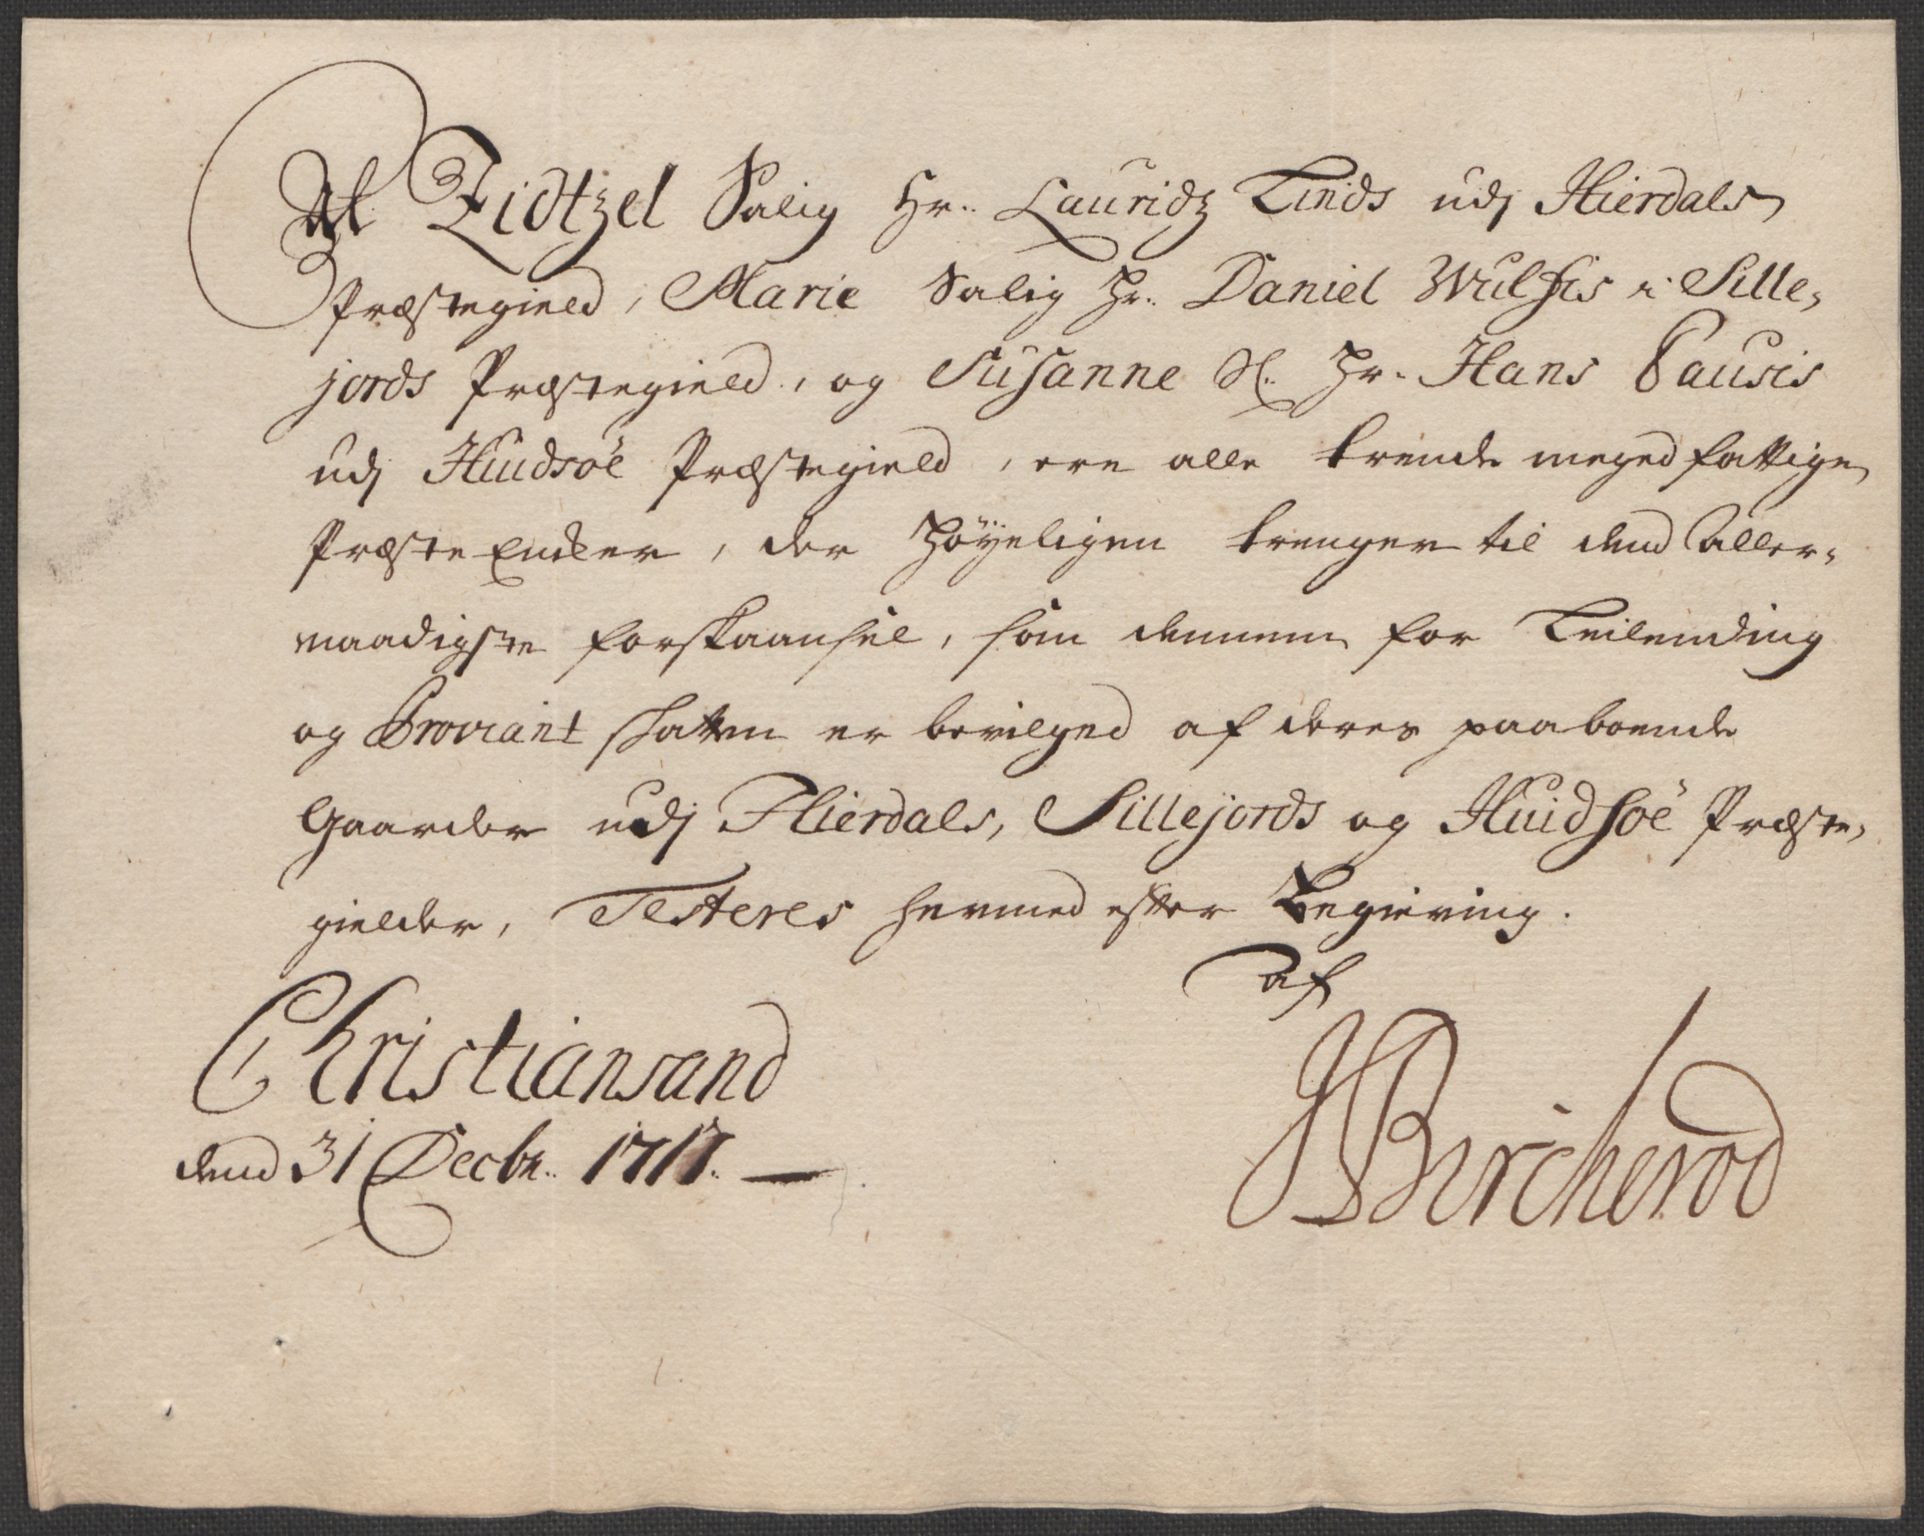 At Zidtzel Salig Hr. Lauridz Linds udj Hierdals
Præstegield, Marie Salig Hr. Daniel Wulfsis i Sille,
jords Præstegield, og Susanne Sl. Hr. Hans Pausis
udj Huidsöe Præstegield, ere alle trende meged fattige
Præste Encker, der höyeligen trenger til dend Aller,
naadigste forskaansel, som dennem for Leilending
og Proviant skatten er bevilged af deres paaboende
Gaarder udj Hierdals, Sillejords og Huidsöe Præste,
gielder, Testeres hermed efter Begiering.
af
Christiansand
dend 31 Decbr. 1717.
JBircherod